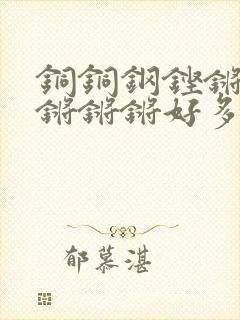 銅銅鋼鏗鏘
鏘鏘鏘好多
郁慕湛